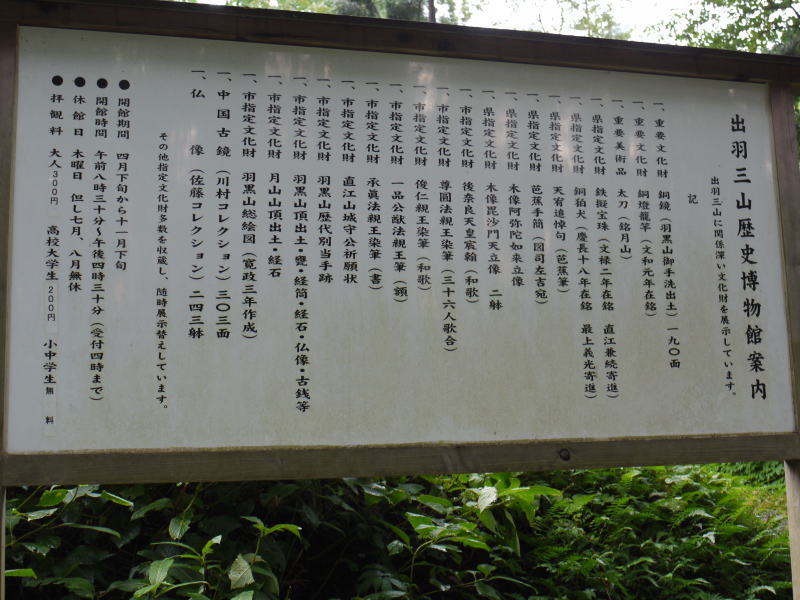 出羽三山歴史博物館案内
出羽三山に関係深い文化財を展示しています。
記
一、重要文化財 銅鏡（羽黒山御手洗出土）一九〇面
一、重要文化財 銅燈籠竿（文和元年在銘）
一、重要美術品 太刀（銘月山）
一、県指定文化財 鉄擬宝珠（文禄二年在銘 直江兼続寄進）
一、県指定文化財 銅狛犬（慶長十八年在銘 最上義光寄進）
一、県指定文化財 天宥追悼句（芭蕉筆）
一、県指定文化財 芭蕉手簡（図司左吉宛）
一、県指定文化財 木像阿弥陀如来立像
一、県指定文化財 木像毘沙門天立像 二躰
一、市指定文化財 後奈良天皇宸翰（和歌）
一、市指定文化財 尊圓法親王染筆（三十六人歌合）
一、市指定文化財 俊仁親王染筆（和歌）
一、市指定文化財 一品公猷法親王筆（額）
一、市指定文化財 承眞法親王染筆（書）
一、市指定文化財 直江山城守公祈願状
一、市指定文化財 羽黒山歴代別当手跡
一、市指定文化財 羽黒山頂出土・甕・経筒・経石・仏像・古銭等
一、市指定文化財 月山山頂出土・経石
一、市指定文化財 羽黒山総絵図（寛政三年作成）
一、中国古鏡（川村コレクション）三〇三面
一、仏像（佐藤コレクション）二四三躰
その他指定文化財多数を収蔵し、随時展示替えしています。
●開館期間 四月下旬から十一月下旬
●開館時間 午前八時三十分～午後四時三十分（受付四時まで）
●休館日 木曜日 但し七月、八月無休
●拝観料 大人300円 高校大学生200円 小中学生無料